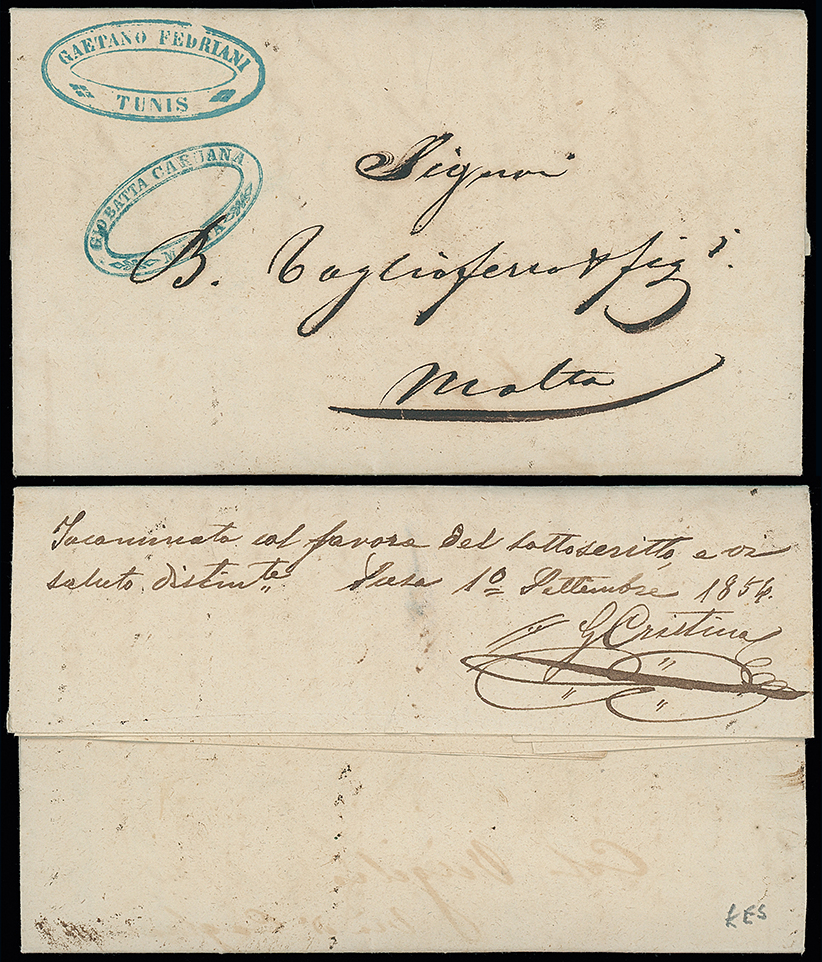 GAETANO FEDRIANI
TUNIS
GIO BATTA CARUANA
MALTA
Signori
B. Tagliaferro & figi.
Malta
Incaminata col favore del sottoscritto, e vi
saluto distinte. Susa 1o Settembre 1854
G Cristina